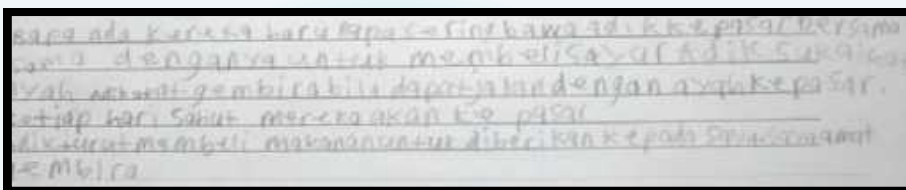 bapa ada kereta baru bapa sering bawa adik ke pasar bersama
sama denganya untuk membeli sayur Adik sukaikan
ayah gembira bila dapat jalan dengan ayah kepasar.
setiap hari Sabut mereka akan ke pasar
adik turut membeli makanan untuk diberikan kepada
gembira